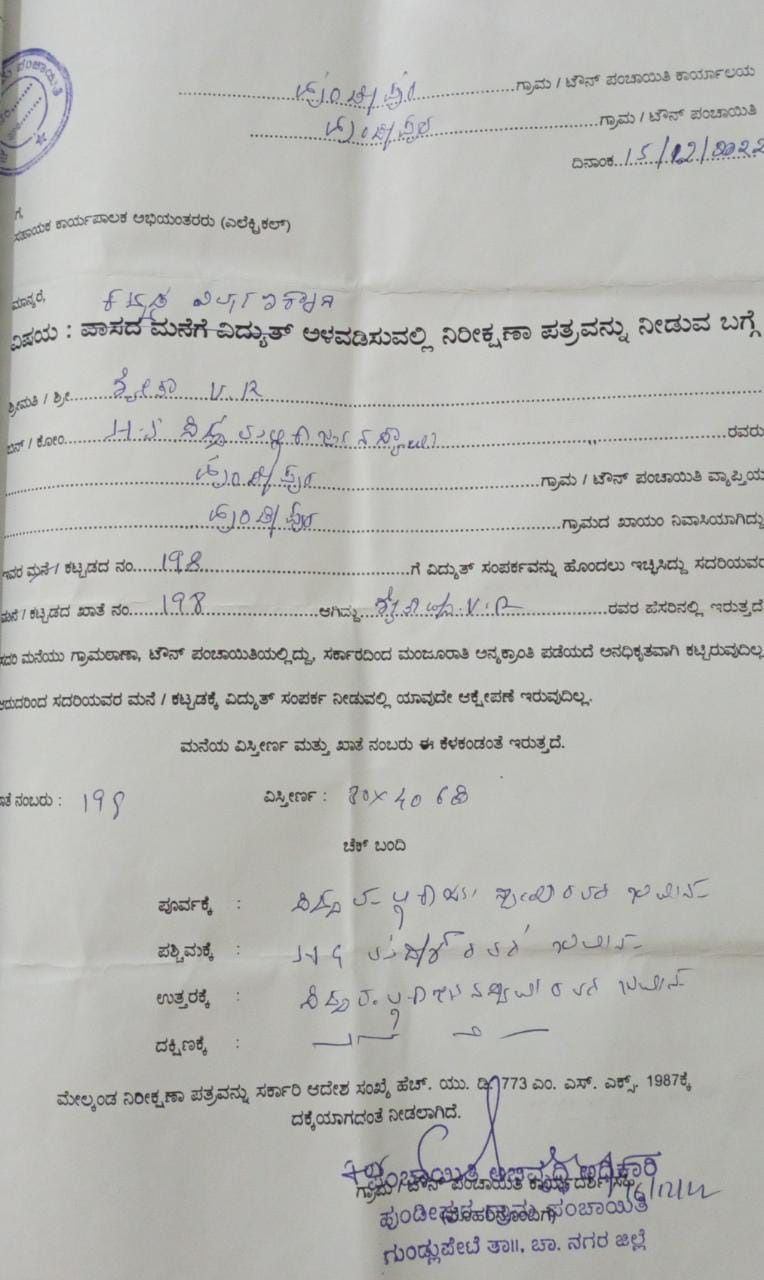 ಪಂಚಾಯಿತಿ
ಹುಂಡೀಪುರ ಗ್ರಾಮ / ಟೌನ್ ಪಂಚಾಯಿತಿ ಕಾರ್ಯಾಲಯ
ಹುಂಡೀಪುರ ಗ್ರಾಮ / ಟೌನ್ ಪಂಚಾಯಿತಿ
ದಿನಾಂಕ 15/12/2022
ಗೆ,
ಸಹಾಯಕ ಕಾರ್ಯಪಾಲಕ ಅಭಿಯಂತರರು (ಎಲೆಕ್ಟ್ರಿಕಲ್)
ಮಾನ್ಯರೆ,
ಕಟ್ಟಡ ನಿರ್ಮಾಣಕ್ಕಾಗಿ
ವಿಷಯ : ವಾಸದ ಮನೆಗೆ ವಿದ್ಯುತ್ ಅಳವಡಿಸುವಲ್ಲಿ ನಿರೀಕ್ಷಣಾ ಪತ್ರವನ್ನು ನೀಡುವ ಬಗ್ಗೆ
ಶ್ರೀಮತಿ / ಶ್ರೀ V.R
ಬಿನ್ / ಕೋಂ ರವರು
ಹುಂಡೀಪುರ ಗ್ರಾಮ / ಟೌನ್ ಪಂಚಾಯಿತಿ ವ್ಯಾಪ್ತಿಯ
ಹುಂಡೀಪುರ ಗ್ರಾಮದ ಖಾಯಂ ನಿವಾಸಿಯಾಗಿದ್ದು
ಇವರ ಮನೆ / ಕಟ್ಟಡದ ನಂ. 198 ಗೆ ವಿದ್ಯುತ್ ಸಂಪರ್ಕವನ್ನು ಹೊಂದಲು ಇಚ್ಛಿಸಿದ್ದು ಸದರಿಯವರ
ಮನೆ / ಕಟ್ಟಡದ ಖಾತೆ ನಂ. 198 ಆಗಿದ್ದು V.R ರವರ ಹೆಸರಿನಲ್ಲಿ ಇರುತ್ತದೆ
ಸದರಿ ಮನೆಯು ಗ್ರಾಮಠಾಣಾ, ಟೌನ್ ಪಂಚಾಯಿತಿಯಲ್ಲಿದ್ದು, ಸರ್ಕಾರದಿಂದ ಮಂಜೂರಾತಿ ಅನ್ಯಕ್ರಾಂತಿ ಪಡೆಯದೆ ಅನಧಿಕೃತವಾಗಿ ಕಟ್ಟಿರುವುದಿಲ್ಲ
ಆದುದರಿಂದ ಸದರಿಯವರ ಮನೆ / ಕಟ್ಟಡಕ್ಕೆ ವಿದ್ಯುತ್ ಸಂಪರ್ಕ ನೀಡುವಲ್ಲಿ ಯಾವುದೇ ಆಕ್ಷೇಪಣೆ ಇರುವುದಿಲ್ಲ.
ಮನೆಯ ವಿಸ್ತೀರ್ಣ ಮತ್ತು ಖಾತೆ ನಂಬರು ಈ ಕೆಳಕಂಡಂತೆ ಇರುತ್ತದೆ.
ಖಾತೆ ನಂಬರು : 198 ವಿಸ್ತೀರ್ಣ : 80×40 ಅಡಿ
ಚೆಕ್ ಬಂದಿ
ಪೂರ್ವಕ್ಕೆ : ರವರ ಜಮೀನು
ಪಶ್ಚಿಮಕ್ಕೆ : ರವರ ಜಮೀನು
ಉತ್ತರಕ್ಕೆ : ರವರ ಜಮೀನು
ದಕ್ಷಿಣಕ್ಕೆ :
ಮೇಲ್ಕಂಡ ನಿರೀಕ್ಷಣಾ ಪತ್ರವನ್ನು ಸರ್ಕಾರಿ ಆದೇಶ ಸಂಖ್ಯೆ ಹೆಚ್. ಯು. ಡಿ. 773 ಎಂ. ಎಸ್. ಎಕ್ಸ್. 1987ಕ್ಕೆ
ದಕ್ಕೆಯಾಗದಂತೆ ನೀಡಲಾಗಿದೆ.
ಪಂಚಾಯಿತಿ ಅಭಿವೃದ್ಧಿ ಅಧಿಕಾರಿ
ಗ್ರಾಮ / ಟೌನ್ ಪಂಚಾಯಿತಿ ಕಾರ್ಯದರ್ಶಿ ಸಹಿ
16/12/22
ಹುಂಡೀಪುರ ಗ್ರಾಮ ಪಂಚಾಯಿತಿ
(ಮೊಹರಿನೊಂದಿಗೆ)
ಗುಂಡ್ಲುಪೇಟೆ ತಾ॥. ಚಾ. ನಗರ ಜಿಲ್ಲೆ